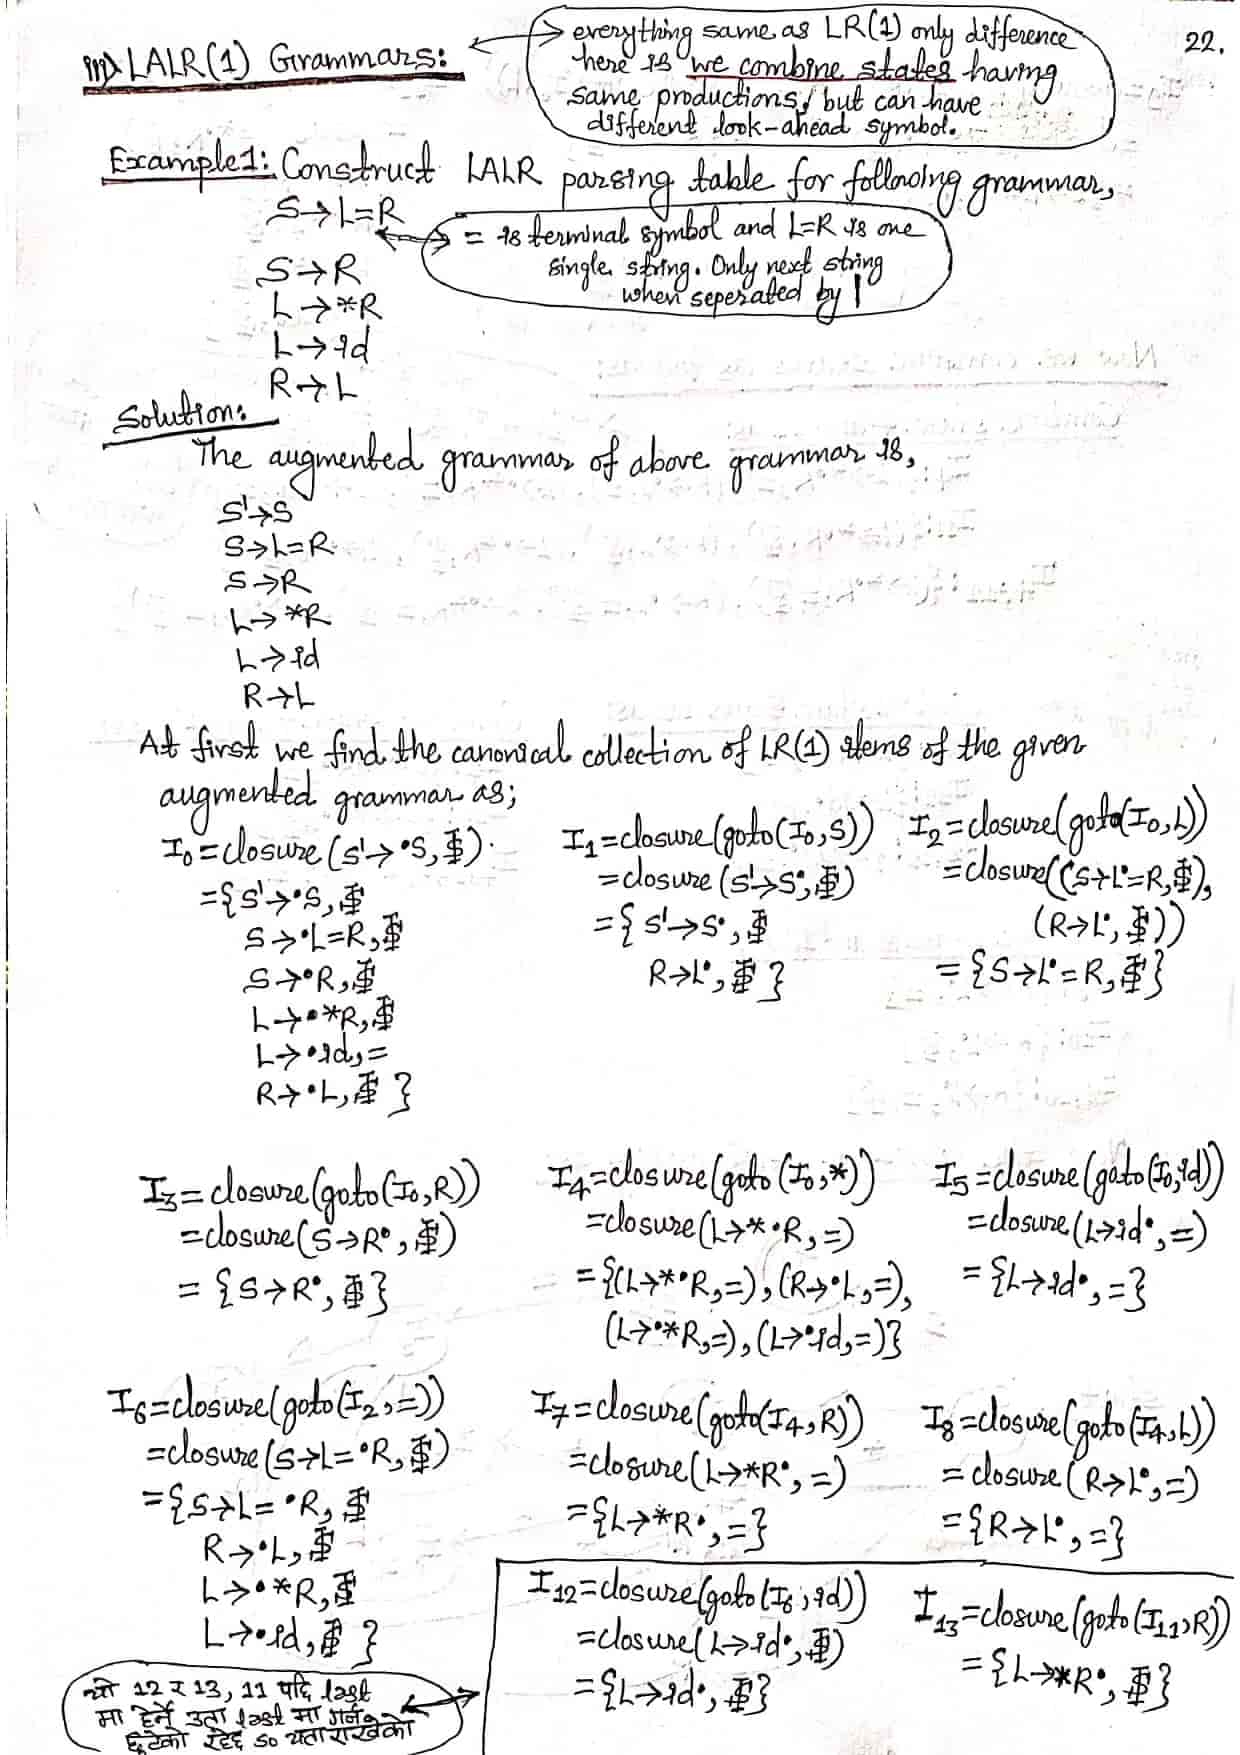 iii) LALR(1) Grammars:
everything same as LR(1) only difference
here is we combine states having
same productions, but can have
different look-ahead symbol.
22.
Example1: Construct LALR parsing table for following grammar,
S→L=R
= is terminal symbol and L=R is one
single string. Only next string
when seperated by |
S→R
L→*R
L→id
R→L
Solution:
The augmented grammar of above grammar is,
S'→S
S→L=R
S→R
L→*R
L→id
R→L
At first we find the canonical collection of LR(1) items of the given
augmented grammar as;
I₀=closure(S'→•S,$)
={S'→•S,$
S→•L=R,$
S→•R,$
L→•*R,$
L→•id,=
R→•L,$ }
I₁=closure(goto(I₀,S))
=closure(S'→S•,$)
={S'→S•,$
R→L•,$ }
I₂=closure(goto(I₀,L))
=closure((S→L•=R,$),
(R→L•,$))
={S→L•=R,$}
I₃=closure(goto(I₀,R))
=closure(S→R•,$)
={S→R•,$}
I₄=closure(goto(I₀,*))
=closure(L→*•R,=)
={(L→*•R,=),(R→•L,=),
(L→•*R,=),(L→•id,=)}
I₅=closure(goto(I₀,id))
=closure(L→id•,=)
={L→id•,=}
I₆=closure(goto(I₂,=))
=closure(S→L=•R,$)
={S→L=•R,$
R→•L,$
L→•*R,$
L→•id,$ }
I₇=closure(goto(I₄,R))
=closure(L→*R•,=)
={L→*R•,=}
I₈=closure(goto(I₄,L))
=closure(R→L•,=)
={R→L•,=}
I₁₂=closure(goto(I₆,id))
=closure(L→id•,$)
={L→id•,$}
I₁₃=closure(goto(I₁₁,R))
={L→*R•,$}
यो 12 र 13, 11 पछि last
मा हेर्ने उता last मा गर्न
छुटेको रहेछ so यता राखेको